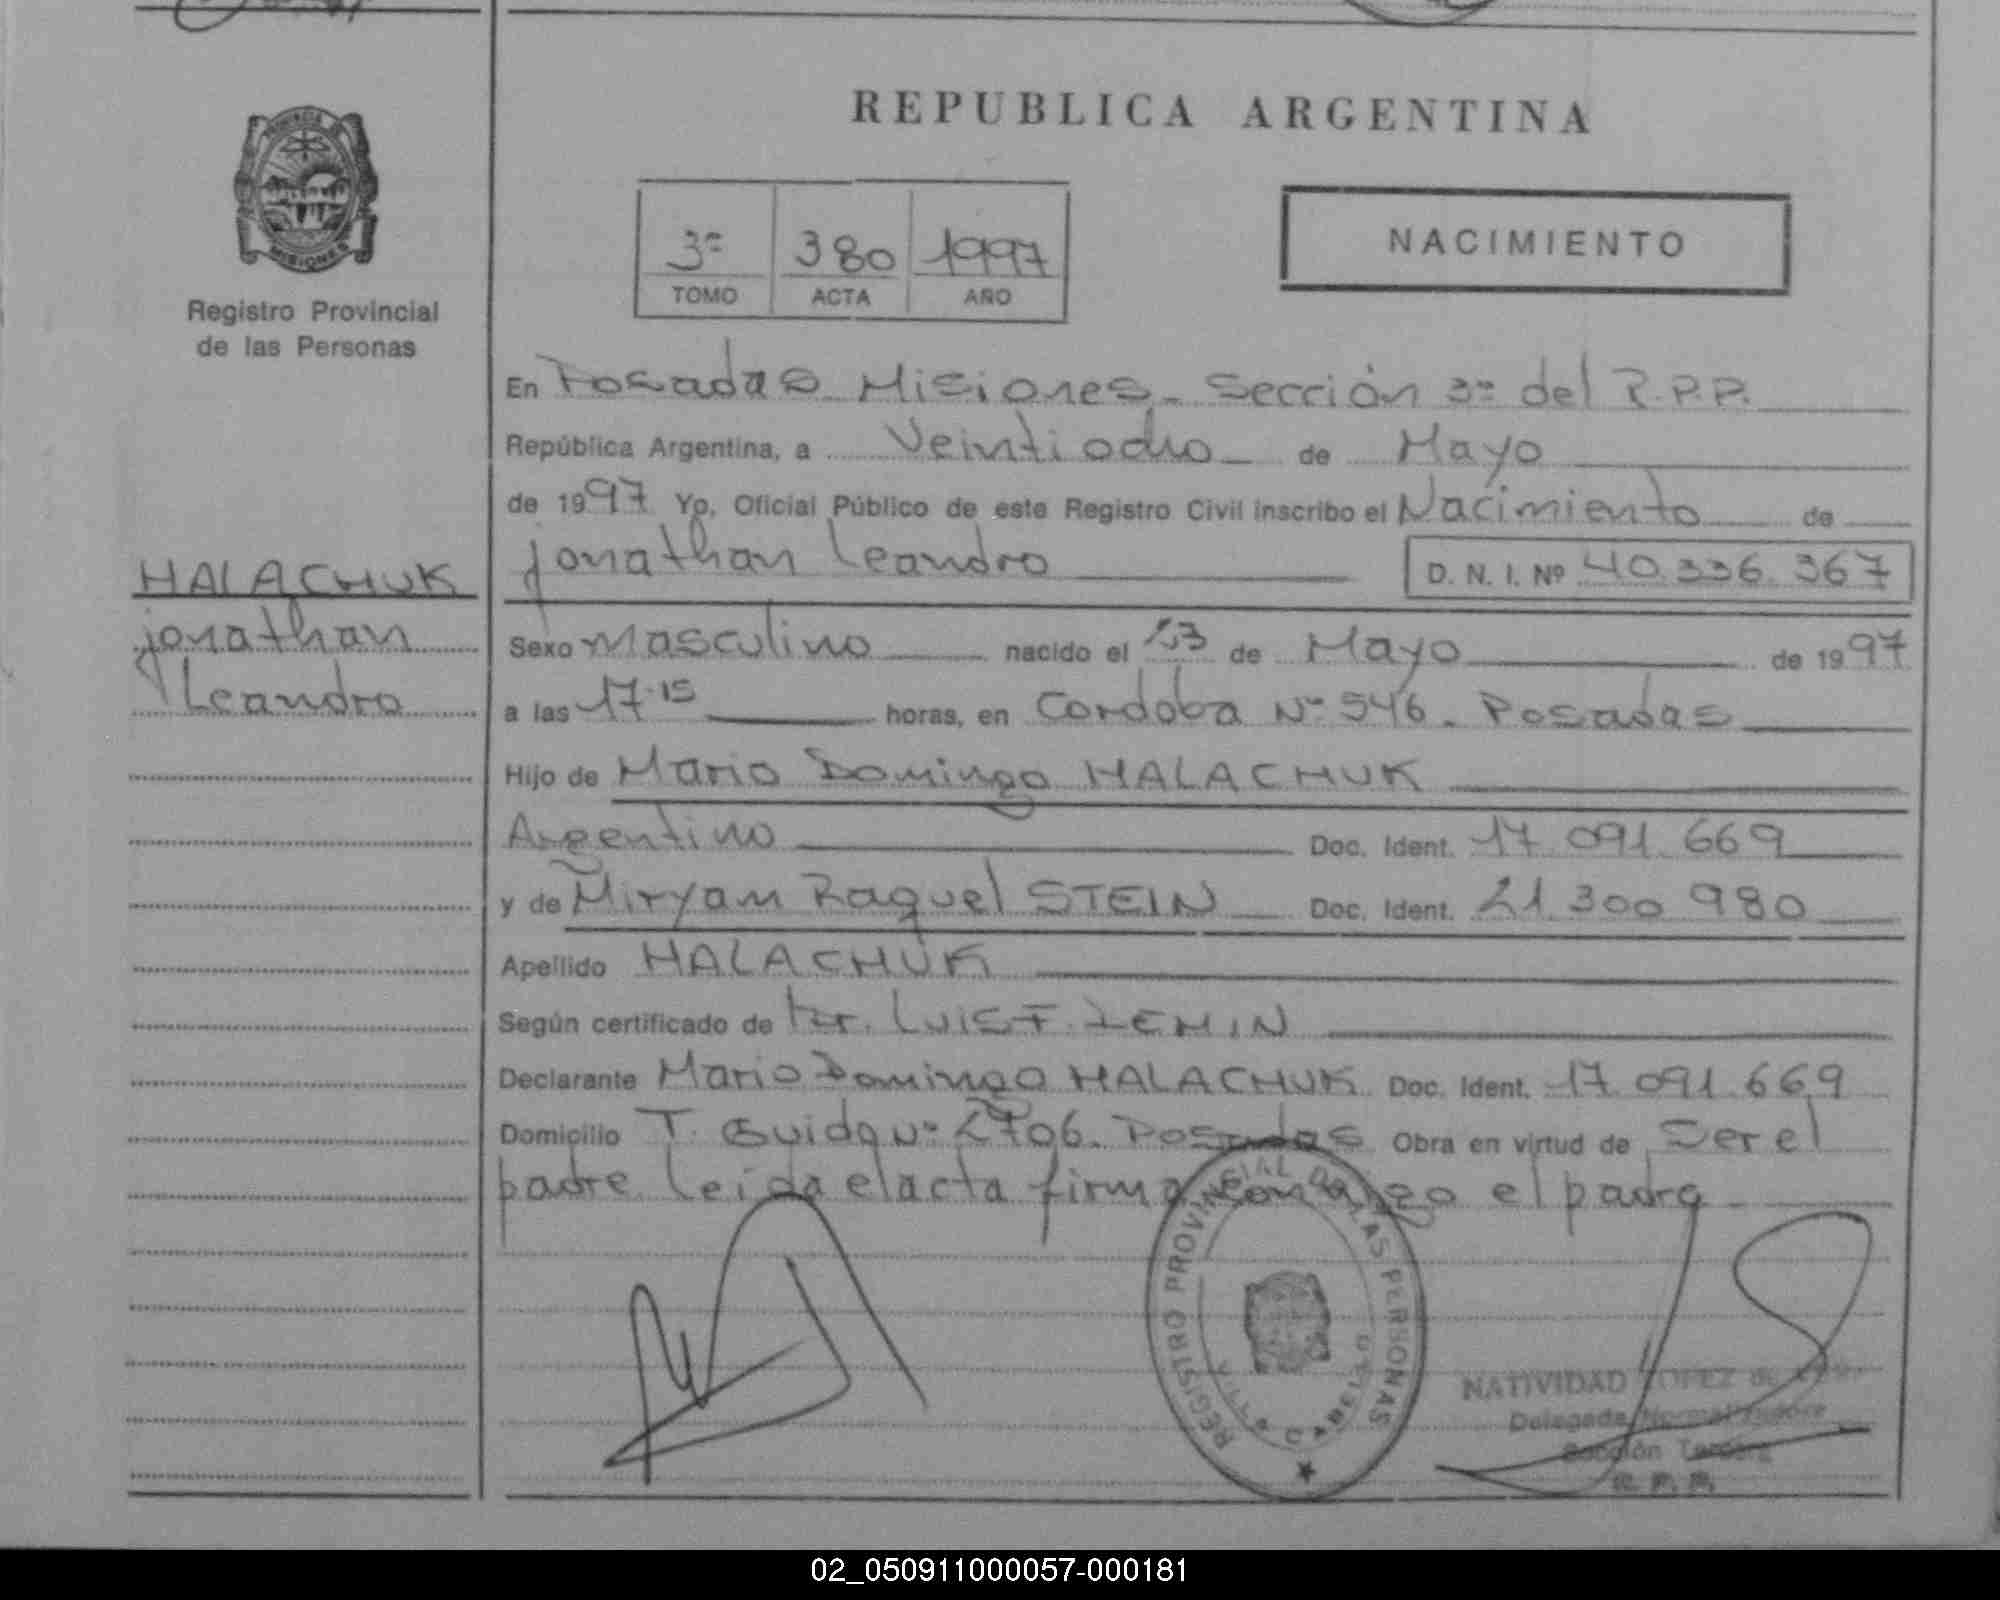 REPUBLICA ARGENTINA
PROVINCIA DE
MISIONES
Registro Provincial
de las Personas
3º 380 1997
TOMO ACTA AÑO
NACIMIENTO
En Posadas Misiones. Sección 3º del R.P.P.
República Argentina, a Veintiocho de Mayo
de 1997 Yo, Oficial Público de este Registro Civil inscribo el Nacimiento de
HALACHUK
Jonathan
Leandro
Jonathan Leandro D. N. I. Nº 40.336.367
Sexo Masculino nacido el de Mayo de 1997
a las 17.15 horas, en Cordoba Nº 546. Posadas
Hijo de Mario Domingo HALACHUK
Argentino Doc. Ident. 17.091.669
y de Miryam Raquel STEIN Doc. Ident. 21.300.980
Apellido HALACHUK
Según certificado de Luis F.
Declarante Mario Domingo HALACHUK Doc. Ident. 17.091.669
Domicilio T. Guido Nº 2706. Posadas Obra en virtud de Ser el
padre Leida el acta firma conmigo el padre
REGISTRO PROVINCIAL DE LAS PERSONAS
VILLA CABELLO
NATIVIDAD LOPEZ de
Delegada Normalizadora
Sección Tercera
R. P. P.
02_050911000057-000181